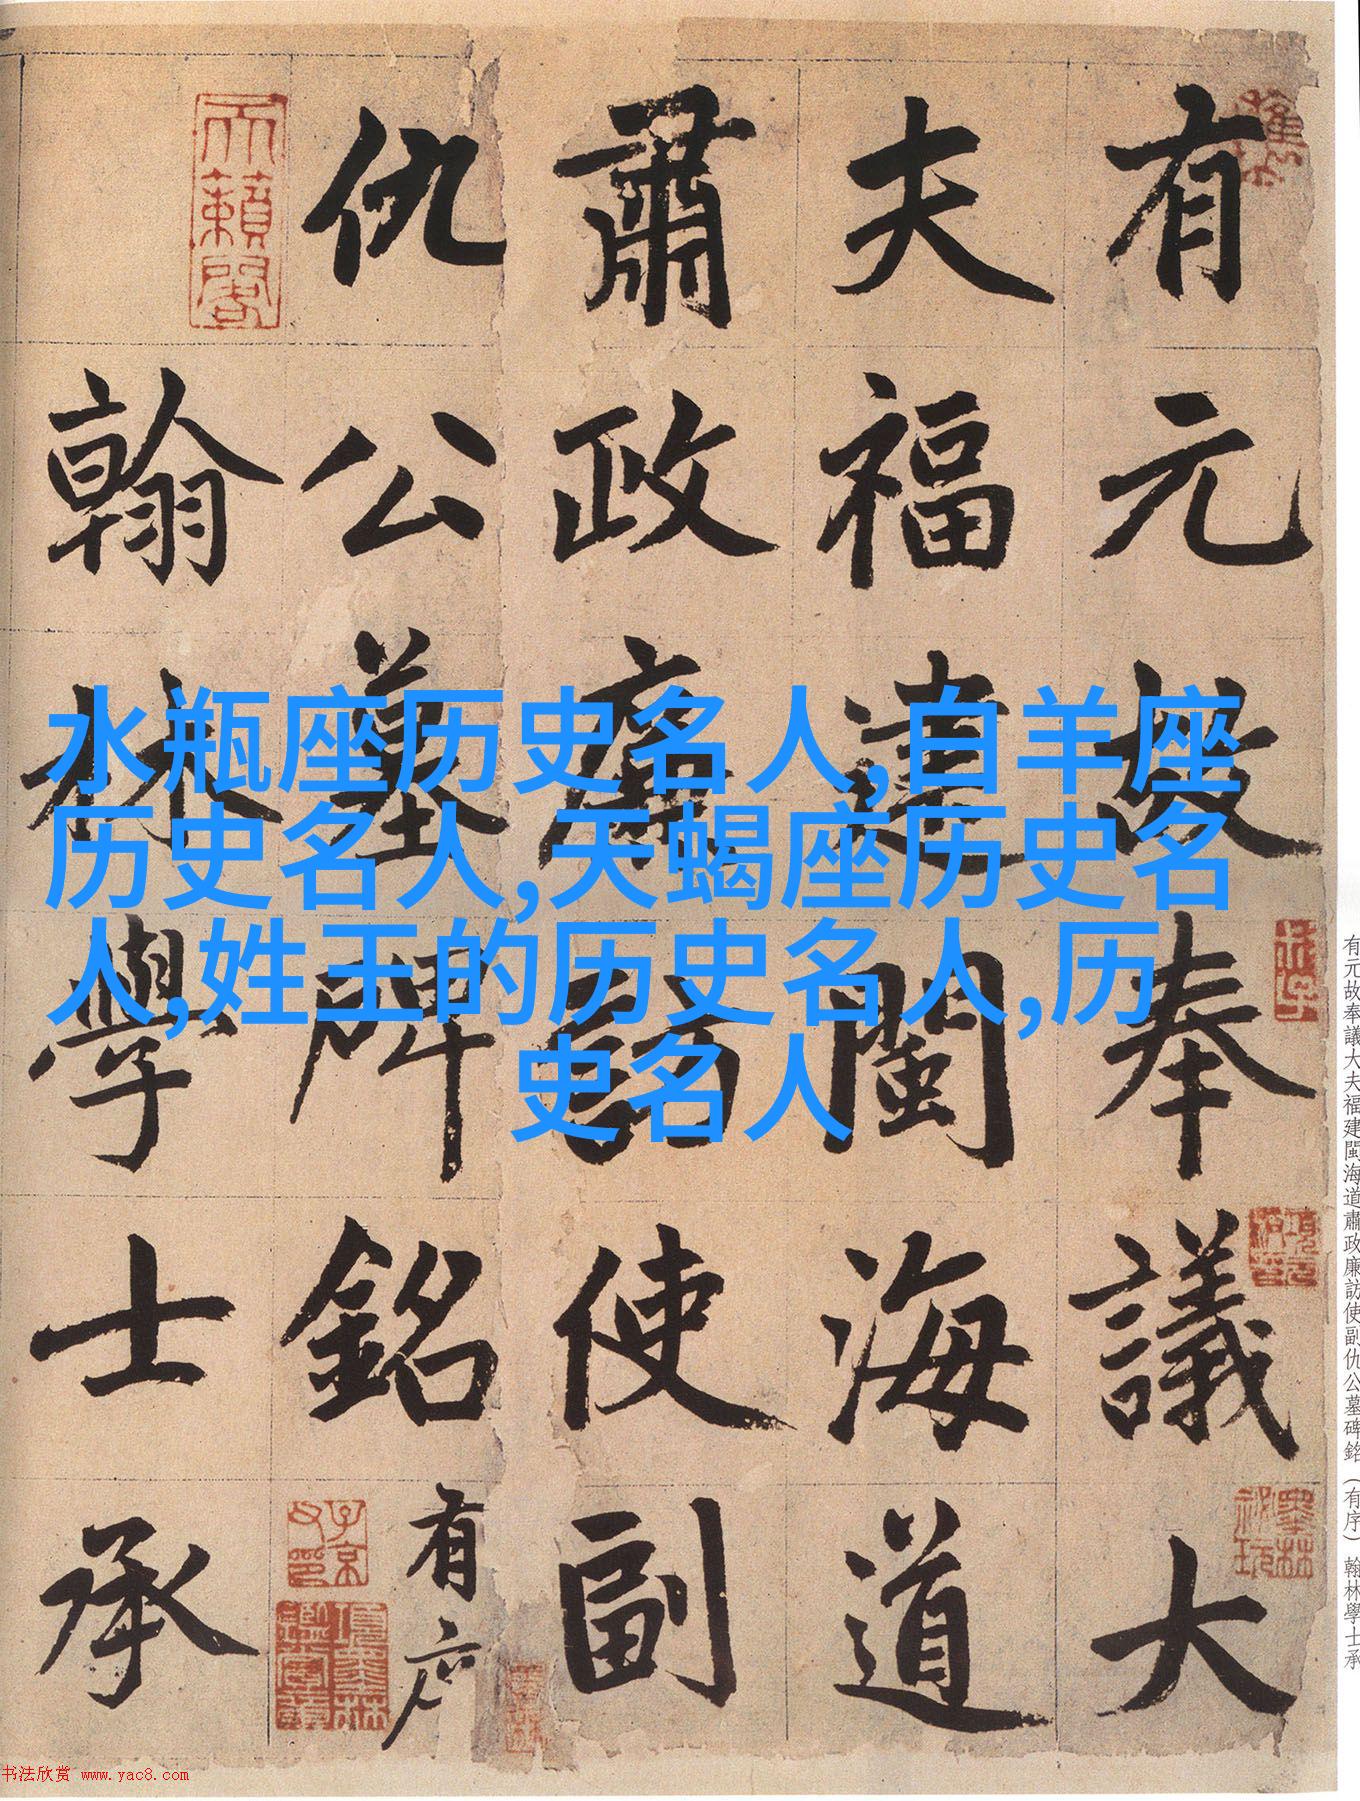 有元故奉議大
夫福建閩海道
肅政廉訪使副
仇公墓碑銘有序
翰林學士承
水瓶座历史名人,白羊座
历史名人,天蝎座历史名
人,姓王的历史名人,历
史名人
天籟閣
子京父印
有元故奉議大夫福建閩海道肅政廉訪使副仇公墓碑銘（有序）翰林學士承
书法欣赏 www.yac8.com